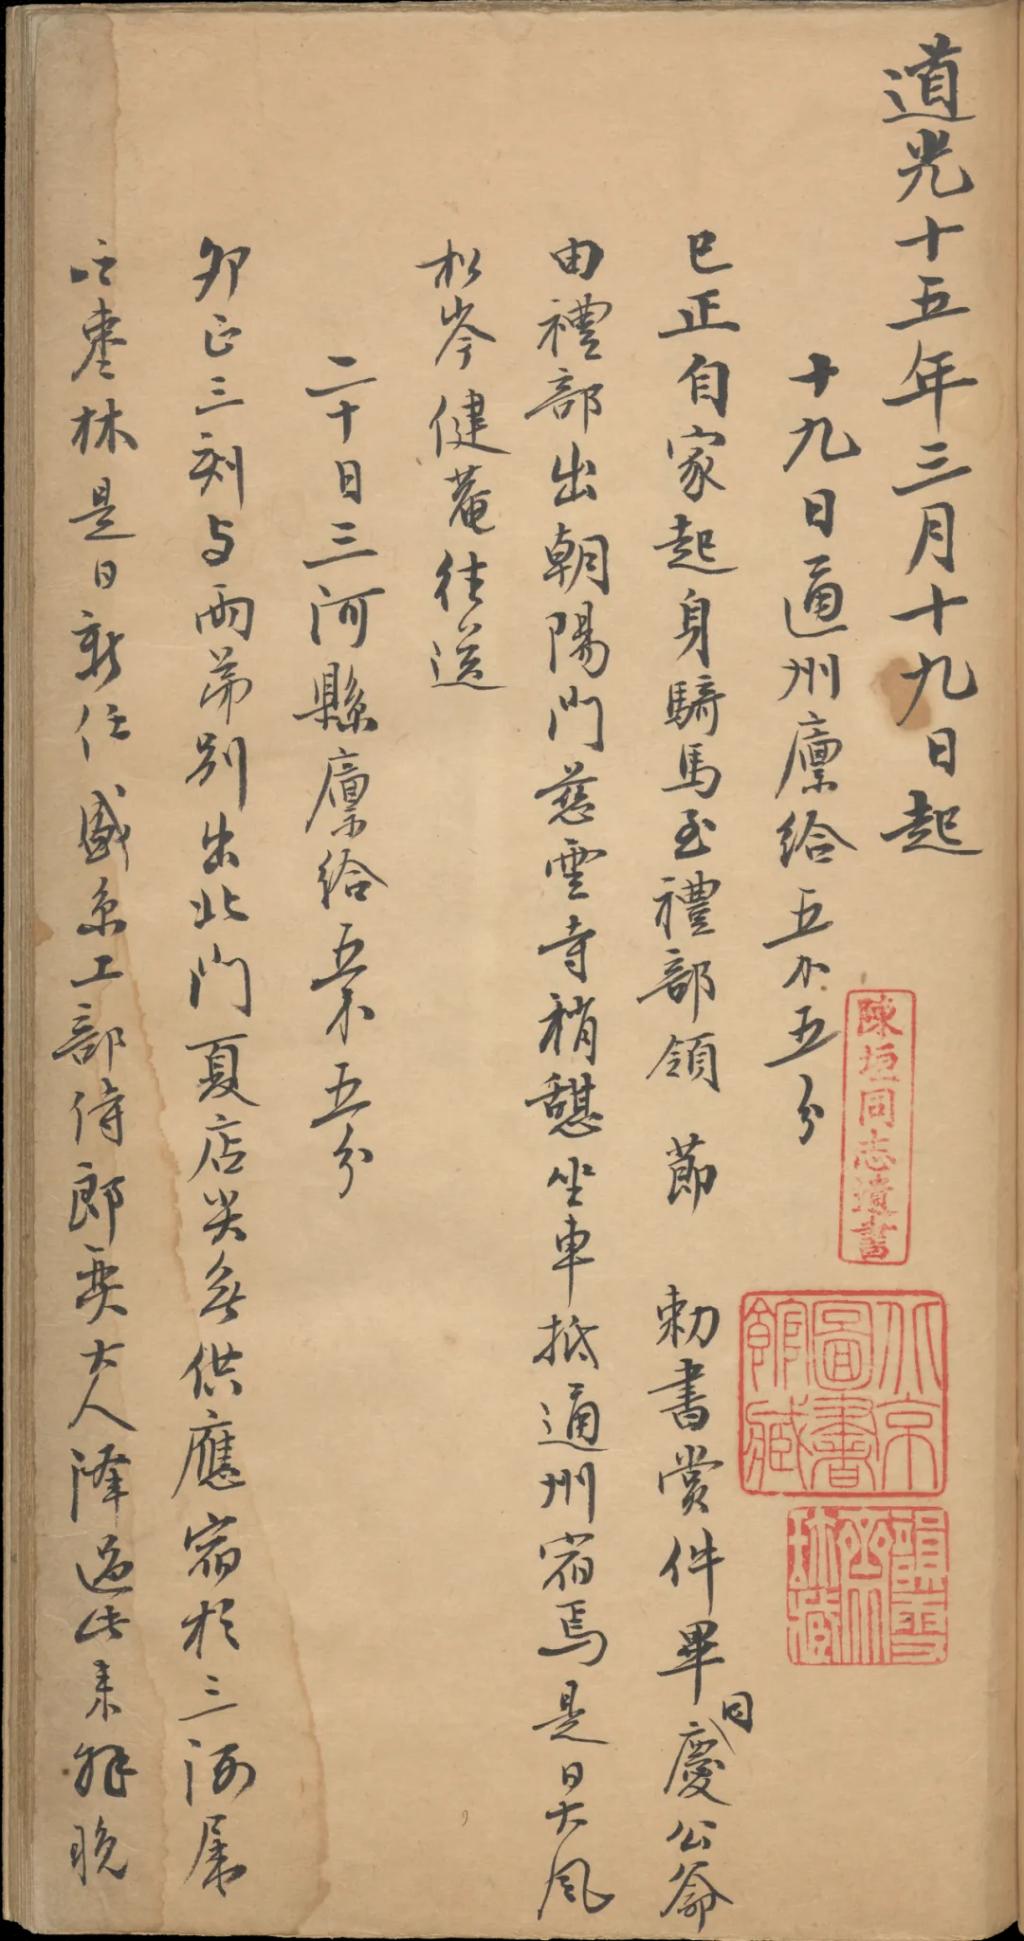 道光十五年三月十九日起
十九日通州廩給五五分
巳正自家起身騎馬至禮部領 節 勅書賞件畢同慶公爺
由禮部出朝陽門慈雲寺稍憩坐車抵通州宿焉是日大風
松岑健菴往送
二十日三河縣廩給五五分
卯正三刻与兩弟別出北門夏店尖無供應宿於三河属
之棗林是日新任盛京工部侍郎奕大人澤過此来拜晚
陳垣同志遺書
北京圖書館藏
韻雪齋珍藏